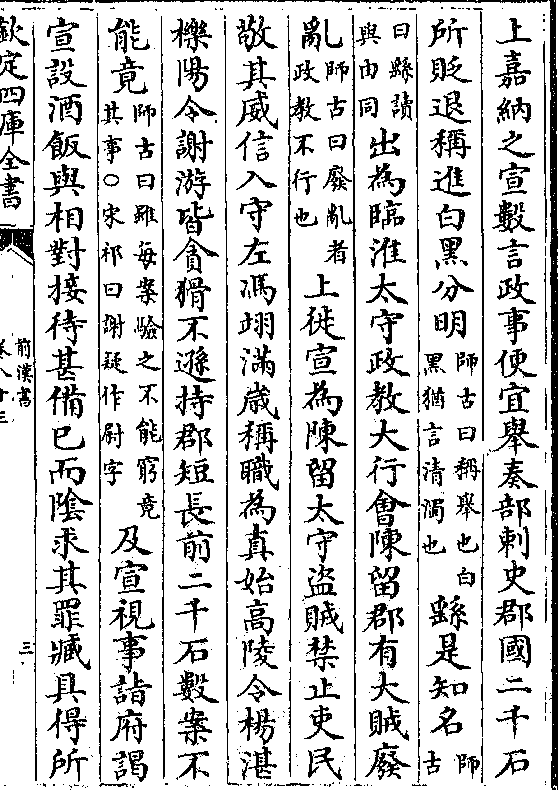 上嘉納之宣數言政事便宜舉奏部刺史郡國二千石
所貶退稱進白黑分明師古曰稱舉也白黑猶言清濁也繇是知名師古
曰繇讀與由同出為臨淮太守政教大行會陳留郡有大賊廢
亂師古曰廢亂者政教不行也上徙宣為陳留太守盜賊禁止吏民
敬其威信入守左馮翊滿歲稱職為真始高陵令楊湛
櫟陽令謝游皆貪猾不遜持郡短長前二千石數案不
能竟師古曰雖每案驗之不能窮竟其事○宋祁曰謝疑作尉字及宣視事詣府謁
宣設酒飯與相對接待甚備已而陰求其罪臧具得所
欽定四庫全書
前漢書
卷八十三
三